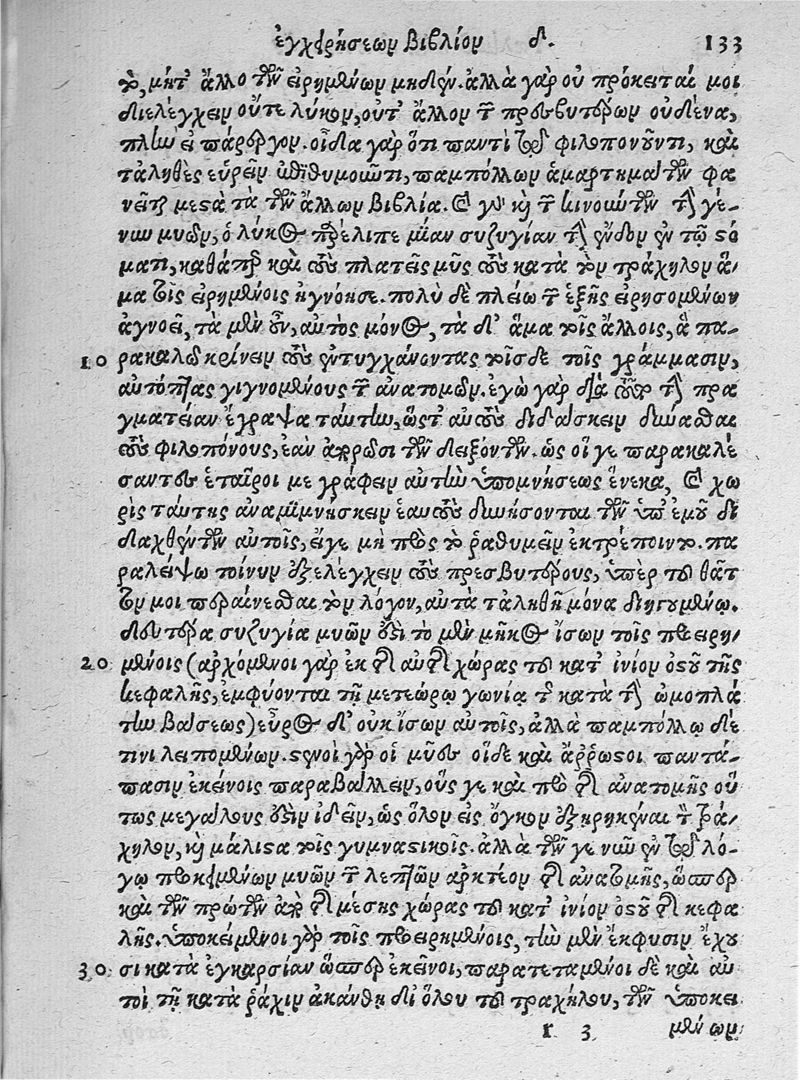 ἐγχειρήσεων βιβλίον δ. 133
το, μήτ' ἄλλο τῶν εἰρημένων μηδέν. ἀλλὰ γὰρ οὐ πρόκειταί μοι
διελέγχειν οὔτε λύκον, οὔτ' ἄλλον τῶν πρεσβυτέρων οὐδένα,
πλὴν εἰ πάρεργον. οἶδα γὰρ ὅτι παντὶ τῷ φιλοπονοῦντι, καὶ
τἀληθὲς εὑρεῖν ἐπιθυμοῦντι, παμπόλλων ἁμαρτημάτων φα
νεῖται μεστὰ τὰ τῶν ἄλλων βιβλία. καὶ γὰρ καὶ τῶν κινούντων τὴν γέ-
νυν μυῶν, ὁ λύκος παρέλιπε μίαν συζυγίαν τὴν ἔνδον ἐν τῷ στό
ματι, καθάπερ καὶ τοὺς πλατεῖς μῦς τοὺς κατὰ τὸν τράχηλον ἅ-
μα τοῖς εἰρημένοις ἠγνόησε. πολὺ δὲ πλείω τῶν ἑξῆς εἰρησομένων
ἀγνοεῖ, τὰ μὲν οὖν, αὐτὸς μόνος, τὰ δ' ἅμα τοῖς ἄλλοις, ἃ πα-
10 ρακαλῶ κρίνειν τοὺς ἐντυγχάνοντας τοῖσδε τοῖς γράμμασιν,
αὐτόπτας γιγνομένους τῶν ἀνατομῶν. ἐγὼ γὰρ διὰ τοῦτο τὴν πρα
γματείαν ἔγραψα ταύτην, ὥστ' αὐτοὺς διδάσκειν δύνασθαι
τοὺς φιλοπόνους, ἐὰν ἀπορῶσι τῶν δειξόντων. ὡς οἵ γε παρακαλέ
σαντες ἑταῖροί με γράφειν αὐτὴν ὑπομνήσεως ἕνεκα, καὶ χω
ρὶς ταύτης ἀναμιμνήσκειν ἑαυτοὺς δυνήσονται τῶν ὑπ' ἐμοῦ δι
δαχθέντων αὐτοῖς, εἴγε μὴ πρὸς τὸ ῥαθυμεῖν ἐκτρέποιντο. πα
ραλείψω τοίνυν ἐξελέγχειν τοὺς πρεσβυτέρους, ὑπὲρ τοῦ θᾶτ
τόν μοι περαίνεσθαι τὸν λόγον, αὐτὰ τἀληθῆ μόνα διηγουμένῳ.
δευτέρα συζυγία μυῶν ἐστὶ τὸ μὲν μῆκος ἴσων τοῖς προειρη-
20 μένοις (ἀρχόμενοι γὰρ ἐκ τῆς αὐτῆς χώρας τοῦ κατ' ἰνίον ὀστοῦ τῆς
κεφαλῆς, ἐμφύονται τῇ μετεώρῳ γωνίᾳ τῆς κατὰ τὴν ὠμοπλά
την βάσεως) εὖρος δ' οὐκ ἴσων αὐτοῖς, ἀλλὰ παμπόλλῳ δέ
τινι λειπομένων. στενοὶ γὰρ οἱ μῦες οἵδε καὶ ἄῤῥωστοι παντά-
πασιν ἐκείνοις παραβάλλειν, οὕς γε καὶ πρὸ τῆς ἀνατομῆς οὕ
τως μεγάλους ἐστὶν ἰδεῖν, ὡς ὅλον εἰς ὄγκον ἐξηρηκέναι τὸν τρά-
χηλον, καὶ μάλιστα τοῖς γυμναστικοῖς. ἀλλὰ τῶν γε νῦν ἐν τῷ λό-
γῳ προκειμένων μυῶν τῶν λεπτῶν ἀρκτέον τῆς ἀνατομῆς, ὥσπερ
καὶ τῶν πρώτων ἀπὸ τῆς μέσης χώρας τοῦ κατ' ἰνίον ὀστοῦ τῆς κεφα
λῆς. ὑποκείμενοι γὰρ τοῖς προειρημένοις, τὴν μὲν ἔκφυσιν ἔχου
30 σι κατὰ ἐγκαρσίαν ὥσπερ ἐκεῖνοι, παρατεταμένοι δὲ καὶ αὐ
τοὶ τῇ κατὰ ῥάχιν ἀκάνθῃ δι' ὅλου τοῦ τραχήλου, τῶν ὑποκει
r 3 μένων